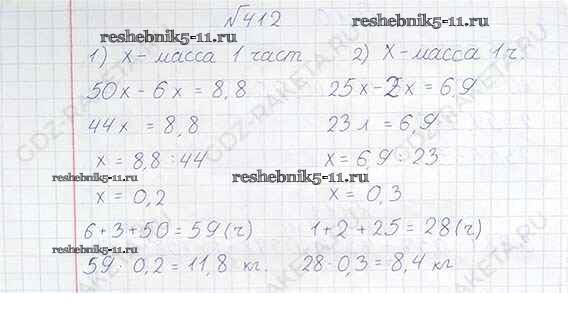 №412
reshebnik5-11.ru
reshebnik5-11.ru
1) х - масса 1 част
50х - 6х = 8,8
44х = 8,8
х = 8,8 : 44
reshebnik5-11.ru
х = 0,2
6 + 3 + 50 = 59 (ч)
reshebnik5-11.ru
59 · 0,2 = 11,8 кг.
2) х - масса 1 ч.
25х - 2х = 6,9
23 х = 6,9
х = 6,9 : 23
reshebnik5-11.ru
х = 0,3
1 + 2 + 25 = 28 (ч)
28 · 0,3 = 8,4 кг
GDZ-RAKETA.RU
GDZ-RAKETA.RU